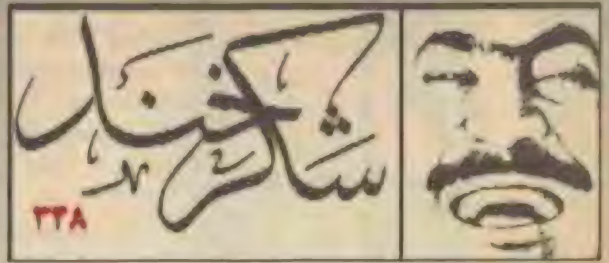 شکرخند
۳۳۸